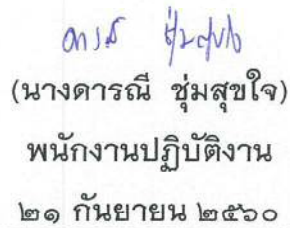 ดารณี ชุ่มสุขใจ
(นางดารณี ชุ่มสุขใจ)
พนักงานปฏิบัติงาน
๒๑ กันยายน ๒๕๖๐